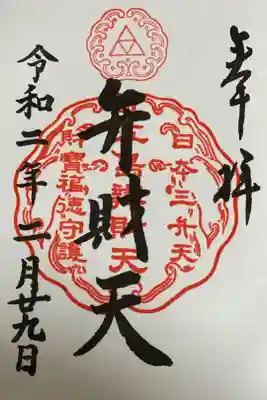 奉拝
日本三弁天
江之島弁財天
財寶福徳守護
弁財天
令和二年二月廿九日